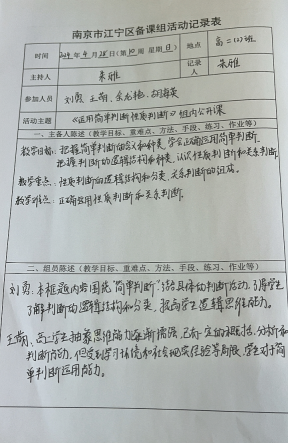 南京市江宁区备课组活动记录表
时间 2024年4月28日(第10周 星期日) 地点 高二(2)班
主持人 朱雅 记录人 朱雅
参加人员 刘勇 王萌 胡海英
活动主题 《运用简单判断性质判断》组内公开课
一、主备人陈述(教学目标、重难点、方法、手段、练习、作业等)
教学目标:把握简单判断的含义和种类,学会正确运用简单判断
把握判断的逻辑结构和种类,认识性质判断和关系判断
教学重点:性质判断的逻辑结构和分类,关系判断的组成。
教学难点:正确运用性质判断和关系判断。
二、组员陈述(教学目标、重难点、方法、手段、练习、作业等)
刘勇:本框题内容围绕"简单判断"结合具体的判断活动,引导学生
了解判断的逻辑结构和分类,提高学生逻辑思维能力。
王萌:高二学生抽象思维能力逐渐增强,已有一定的概括、分析和
判断能力,但受到学习情境和社会现实经验等局限,学生对于简
单判断运用能力。